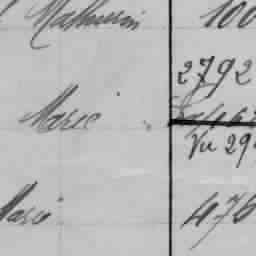 Mathurin 100
2792
Marie
Vu 29
Marie 476